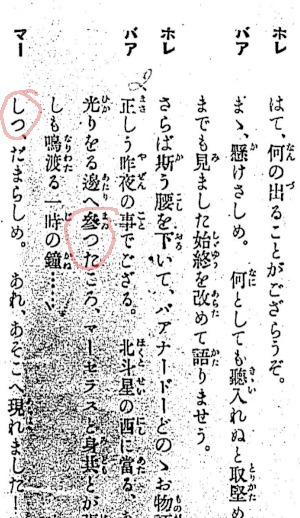 ホレ はて、何の出ることがござらうぞ。
バア まゝ、懸けさしめ。 何としても聽入れぬと取堅め
までも見ました始終を改めて語りませう。
ホレ さらば斯う腰を下いて、バアナードどのゝお物
バア 正しう昨夜の事でござる。 北斗星の西に當る、
光りをる邊へ參つたころ、マーセラスと身共とが
しも鳴渡る一時の鐘……
マー しつ、だまらしめ。 あれ、あそこへ現れました！